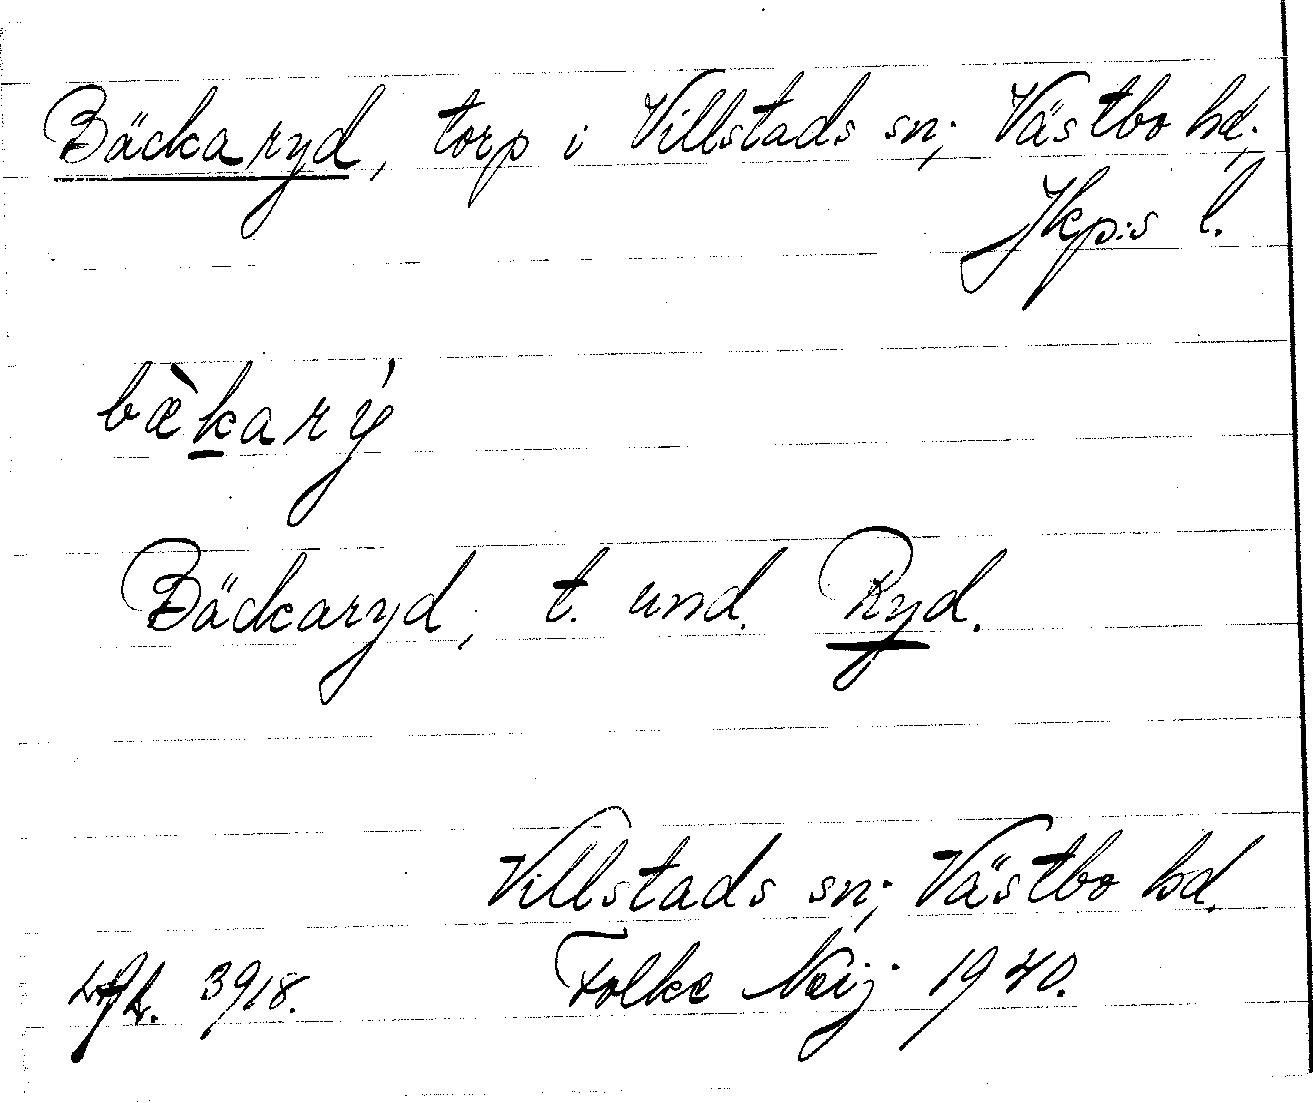 Bäckaryd, torp i Villstads sn; Västbo hd;
Jkp:s l.
bæ̀karý
Bäckaryd, t. und. Ryd.
Villstads sn; Västbo hd.
3918. Folke Neij 1940.